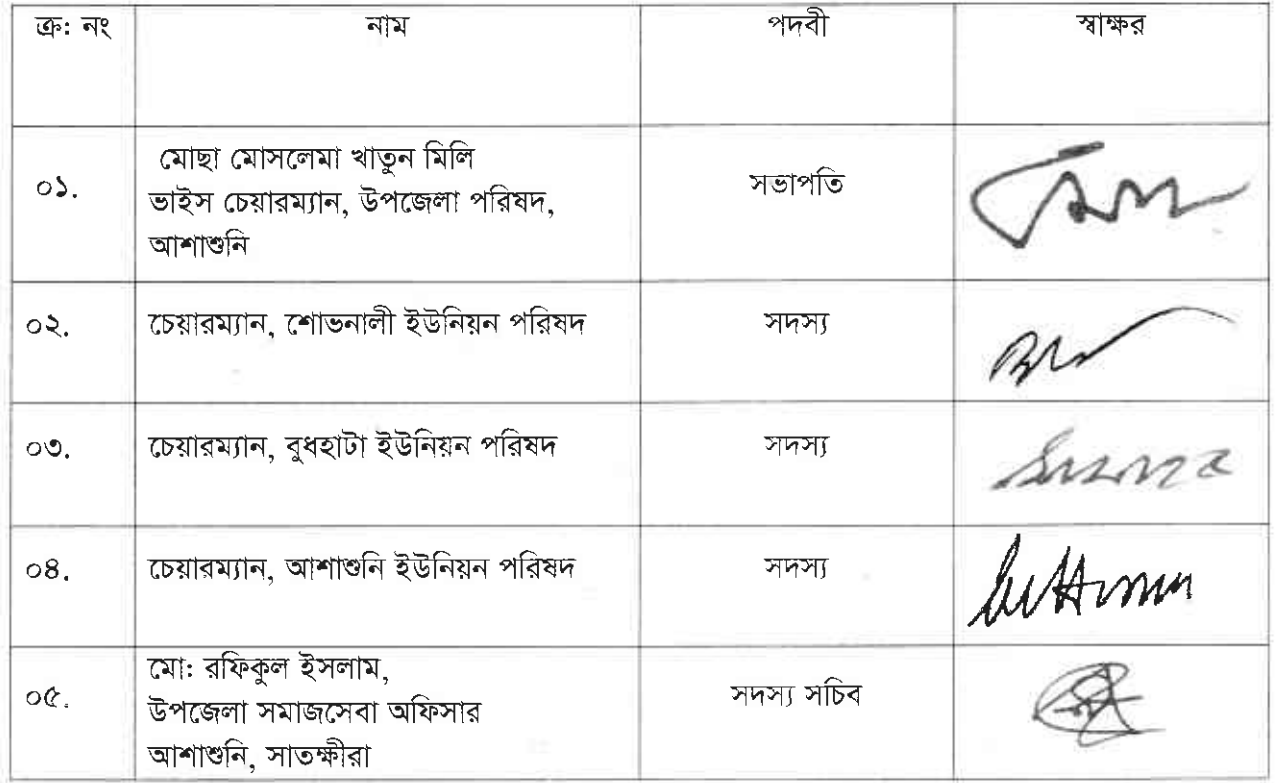 ক্র: নং নাম পদবী স্বাক্ষর
০১. মোছা মোসলেমা খাতুন মিলি
ভাইস চেয়ারম্যান, উপজেলা পরিষদ,
আশাশুনি
সভাপতি
০২. চেয়ারম্যান, শোভনালী ইউনিয়ন পরিষদ সদস্য
০৩. চেয়ারম্যান, বুধহাটা ইউনিয়ন পরিষদ সদস্য
০৪. চেয়ারম্যান, আশাশুনি ইউনিয়ন পরিষদ সদস্য
০৫. মো: রফিকুল ইসলাম,
উপজেলা সমাজসেবা অফিসার
আশাশুনি, সাতক্ষীরা
সদস্য সচিব